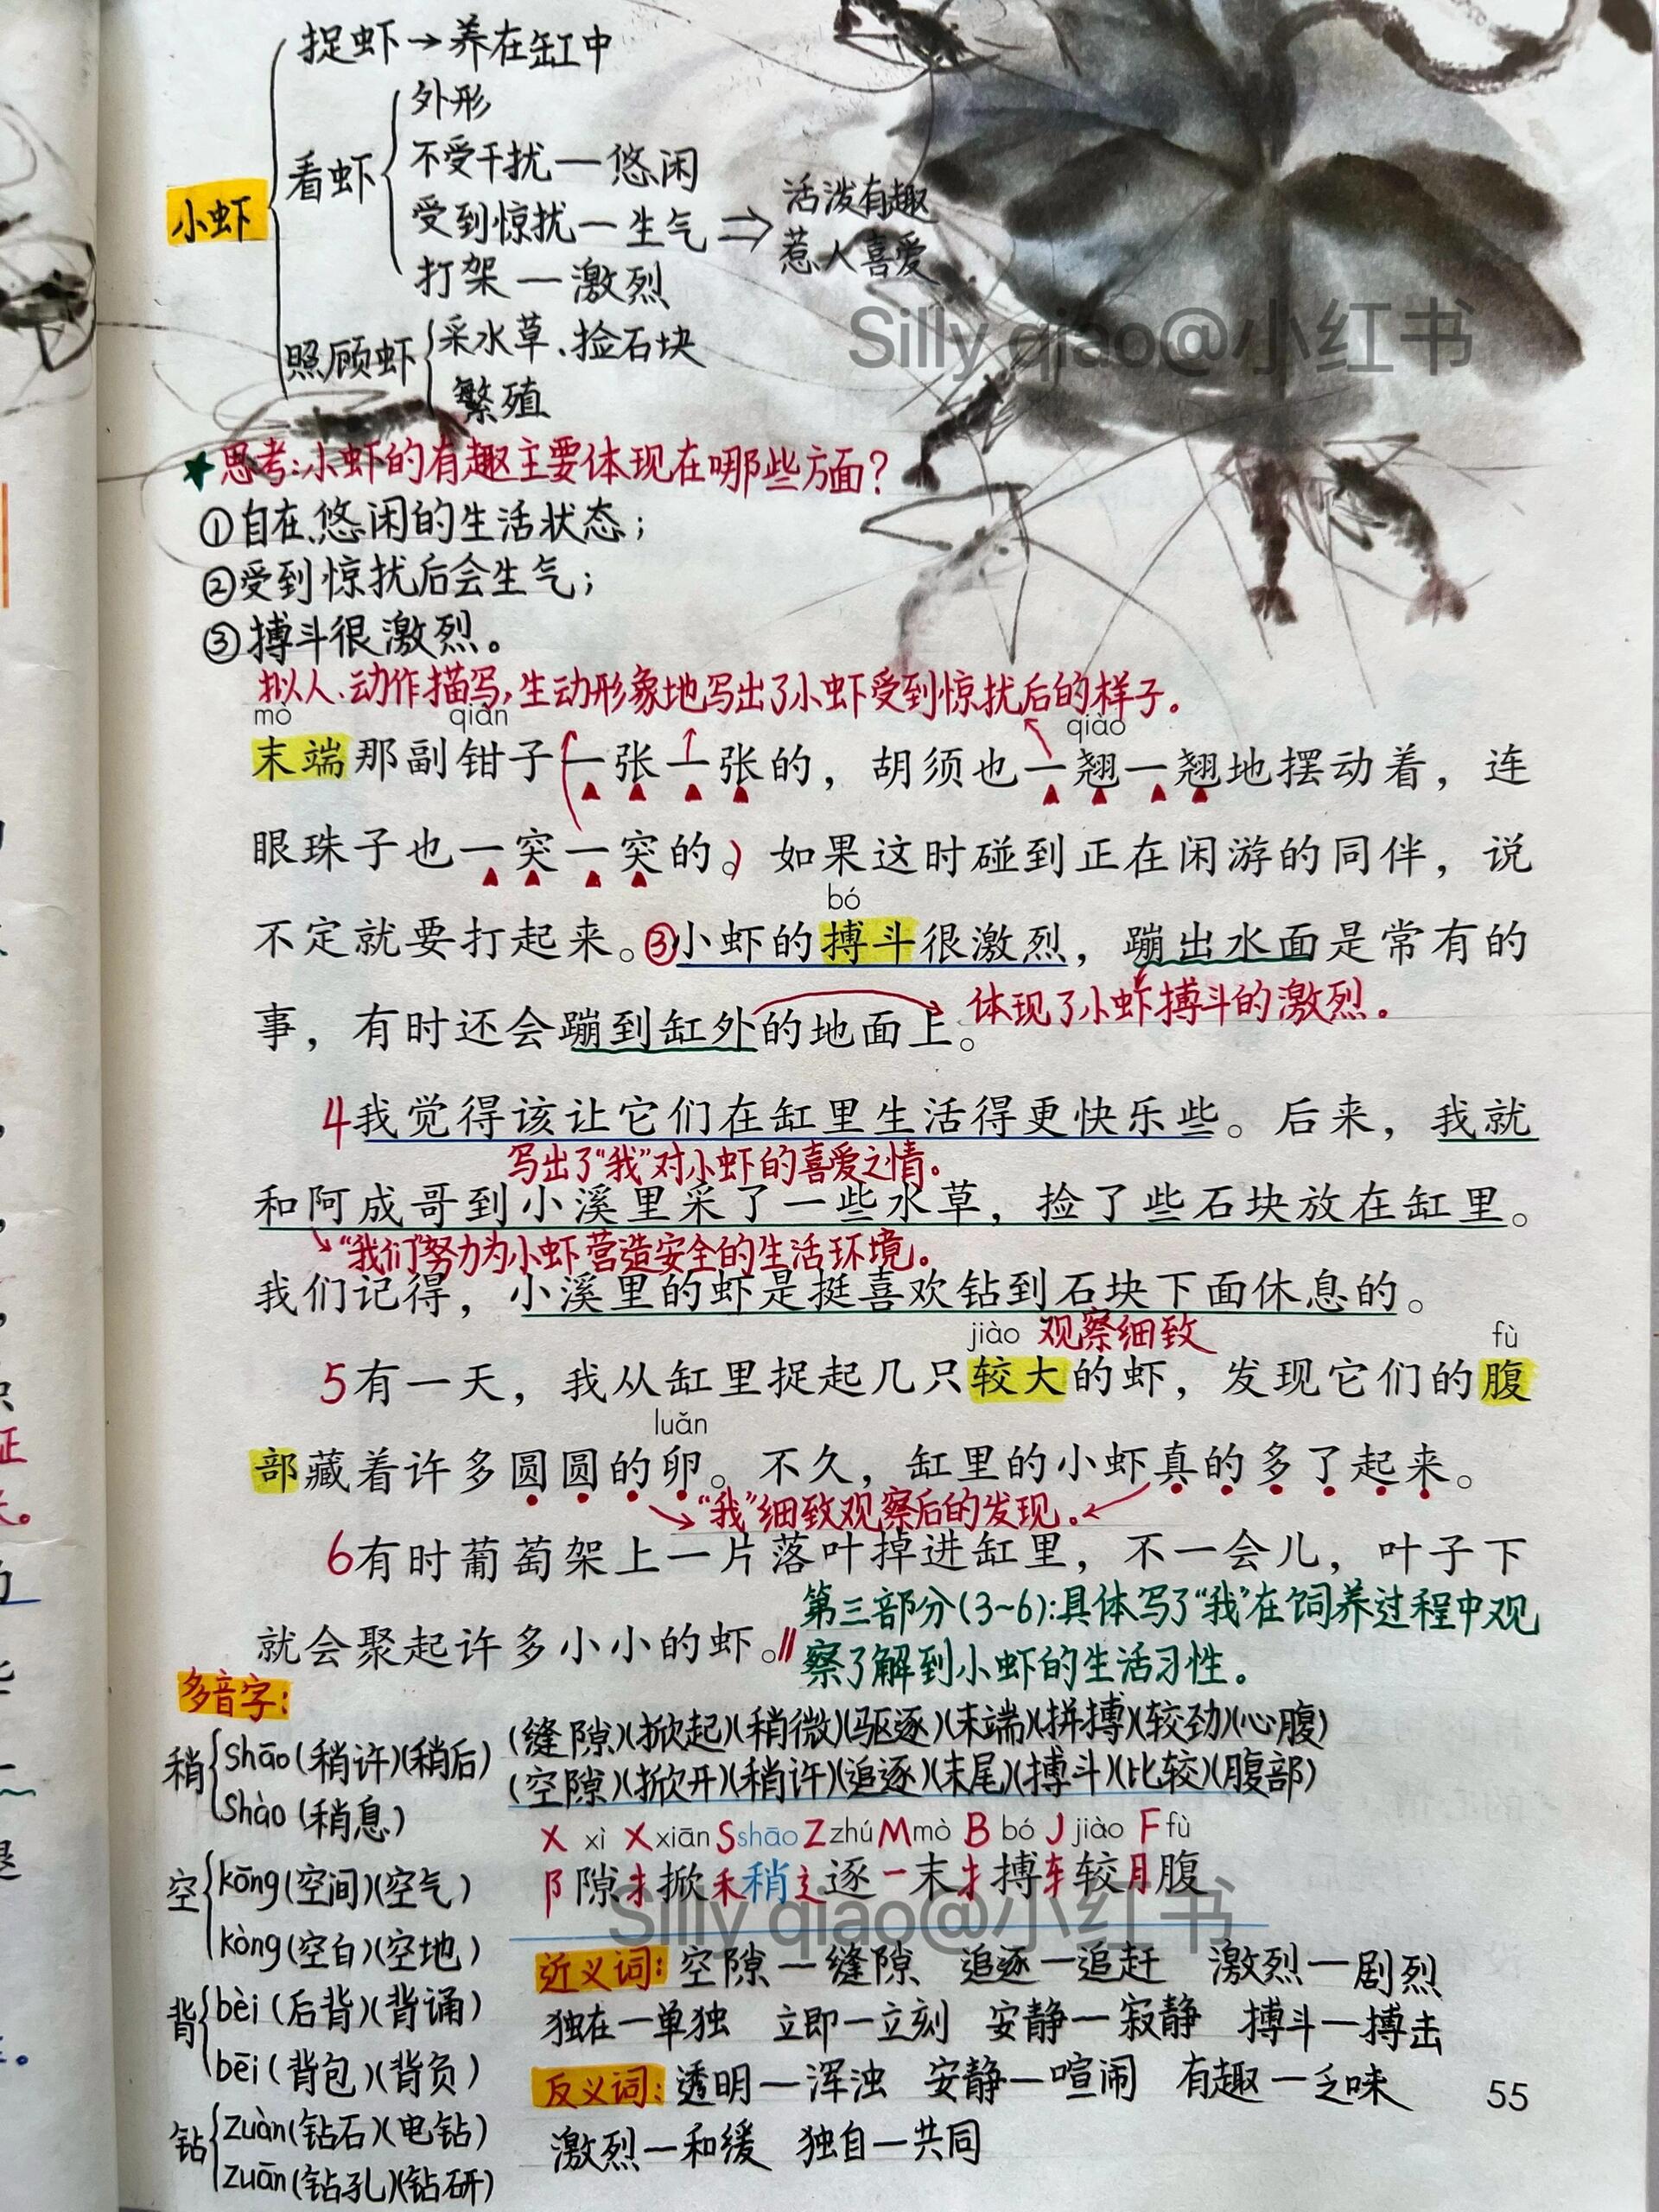 捉虾→养在缸中
外形
小虾
看虾
不受干扰—悠闲
受到惊扰—生气⇒活泼有趣
惹人喜爱
打架—激烈
照顾虾
采水草、捡石块
繁殖
Silly qiao@小红书
★思考:小虾的有趣主要体现在哪些方面?
①自在、悠闲的生活状态;
②受到惊扰后会生气;
③搏斗很激烈。
拟人、动作描写,生动形象地写出了小虾受到惊扰后的样子。
mò qián qiào
末端那副钳子一张一张的，胡须也一翘一翘地摆动着，连
眼珠子也一突一突的。如果这时碰到正在闲游的同伴，说
bó
不定就要打起来。③小虾的搏斗很激烈，蹦出水面是常有的
事，有时还会蹦到缸外的地面上。
体现了小虾搏斗的激烈。
4我觉得该让它们在缸里生活得更快乐些。后来，我就
写出了“我”对小虾的喜爱之情。
和阿成哥到小溪里采了一些水草，捡了些石块放在缸里。
“我们”努力为小虾营造安全的生活环境。
我们记得，小溪里的虾是挺喜欢钻到石块下面休息的。
jiào 观察细致 fù
5有一天，我从缸里捉起几只较大的虾，发现它们的腹
luǎn
部藏着许多圆圆的卵。不久，缸里的小虾真的多了起来。
“我”细致观察后的发现。
6有时葡萄架上一片落叶掉进缸里，不一会儿，叶子下
就会聚起许多小小的虾。
第三部分(3~6):具体写了“我”在饲养过程中观
察了解到小虾的生活习性。
多音字:
稍
shāo(稍许)(稍后)
shào(稍息)
空
kōng(空间)(空气)
kòng(空白)(空地)
背
bèi(后背)(背诵)
bēi(背包)(背负)
钻
zuàn(钻石)(电钻)
zuān(钻孔)(钻研)
(缝隙)(掀起)(稍微)(驱逐)(末端)(拼搏)(较劲)(心腹)
(空隙)(掀开)(稍许)(追逐)(末尾)(搏斗)(比较)(腹部)
X xì X xiān S shāo Z zhú M mò B bó J jiào F fù
阝隙扌掀禾稍辶逐一末扌搏车较月腹
Silly qiao@小红书
近义词:空隙—缝隙 追逐—追赶 激烈—剧烈
独在—单独 立即—立刻 安静—寂静 搏斗—搏击
反义词:透明—浑浊 安静—喧闹 有趣—乏味
激烈—和缓 独自—共同
55